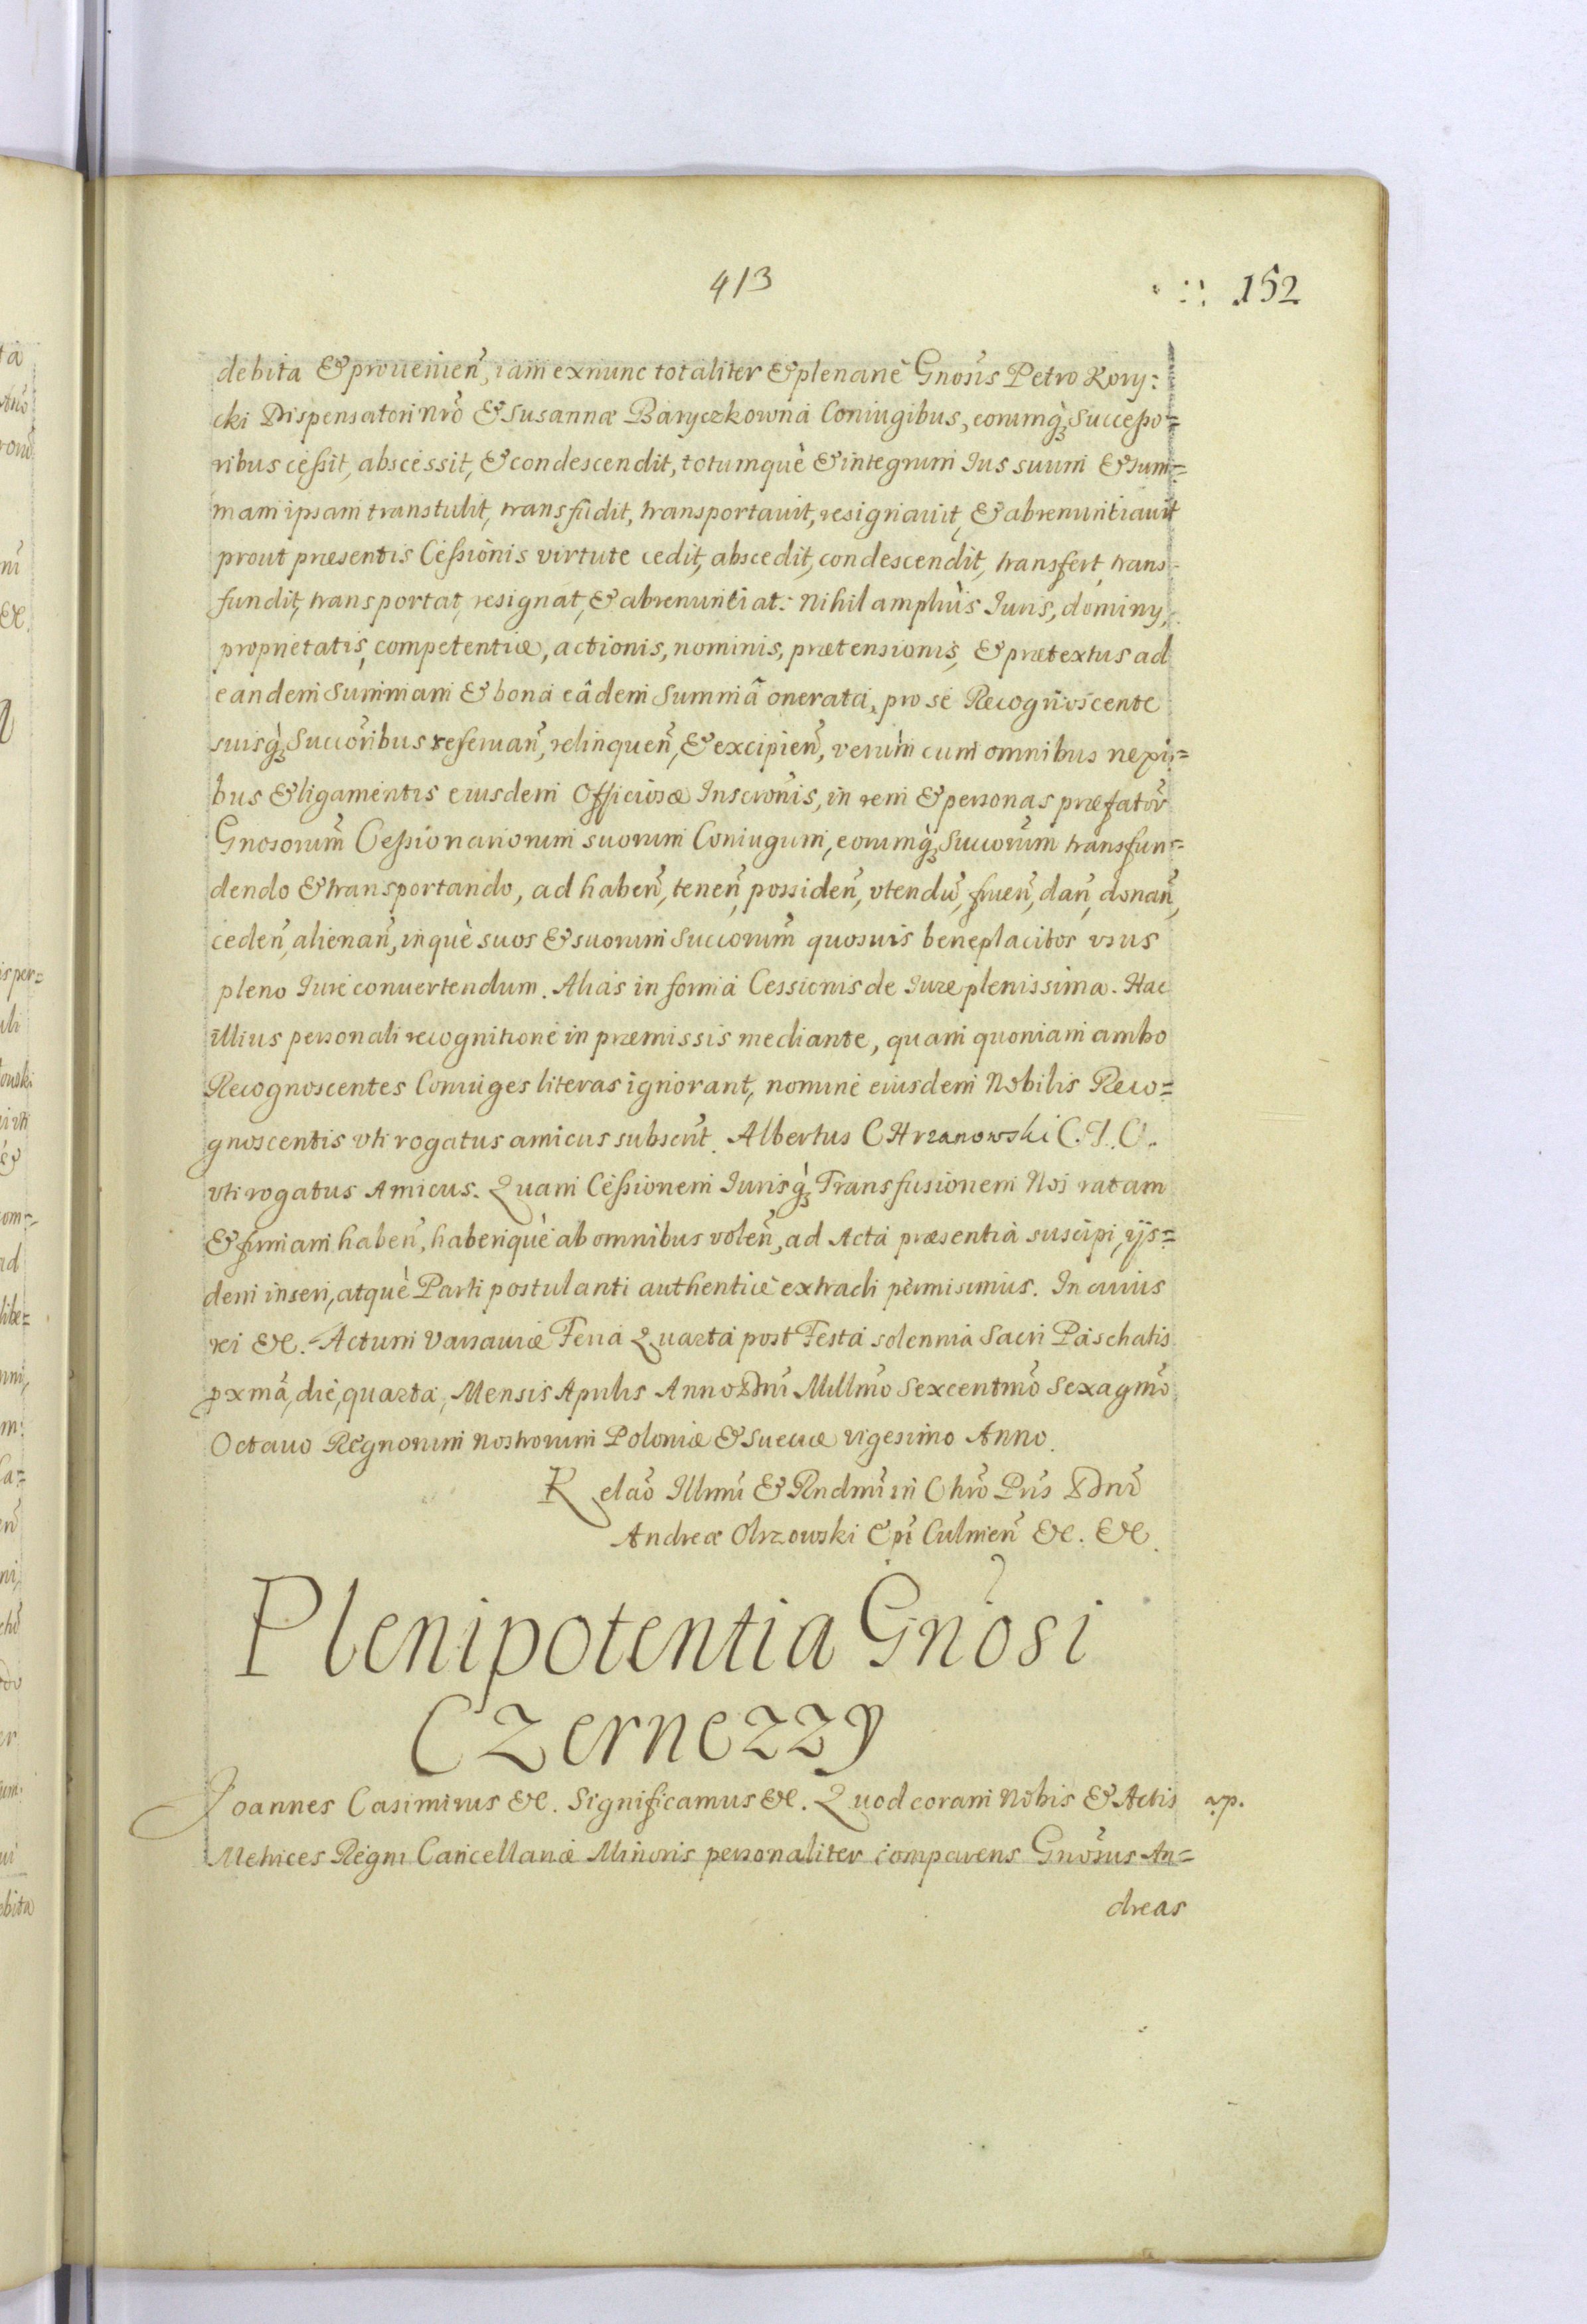 413
152
debita & prouenien̄, iam exnunc totaliter & plenarie Gnosis Petro Kory:
cki Dispensatori nro & Susannæ Baryczkowna Coniugibus, eorumq̀ꝫ Succeßo=
ribus ceßit, abscessit, & condescendit, totumquè & integrum Jus suum & sum=
mam ipsam transtulit, transfudit, transportauit, resignauit, & abrenuntiauit
prout præsentis Ceßionis virtute cedit, abscedit, condescendit, transfert, trans=
fundit, transportat, resignat, & abrenuntiat: Nihil ampliùs Juris, dominy,
proprietatis, competentiæ, actionis, nominis, prætensionis, & prætextus ad
eandem Summam & bona eâdem Summâ onerata, pro se Recognoscente
suisq̀ꝫ Succoribus reseruan̄, relinquen̄, & excipien̄, verùm cum omnibus nexi=
bus & ligamentis eiusdem Officiosæ Inscronis, in rem & personas præfator̄
Gnosorum̄ Ceßionariorum suorum Coniugum, eorumq̀ꝫ Succorum̄ transfun=
dendo & transportando, ad haben̄, tenen̄, possiden̄, vtendū, fruen̄, dan̄, donan̄,
ceden̄, alienan̄, inquè suos & suorum Succorum̄ quosuis beneplacitos vsus
pleno Jure conuertendum. Aliàs in forma Cessionis de Jure plenissima. Hac
illius personali recognitione in præmissis mediante, quam quoniam ambo
Recognoscentes Coniuges literas ignorant, nomine eiusdem Nobilis Reco=
gnoscentis vti rogatus amicus subscrit. Albertus CHrzanowski C. J. C.
vti rogatus Amicus. Quam Ceßionem Jurisq̀ꝫ Transfusionem Nos ratam
& firmam haben̄, haberiquè ab omnibus volen̄, ad Acta præsentia suscipi, ijs=
dem inseri, atquè Parti postulanti authenticè extradi permisimus. In cuius
rei &c. Actum Varsauiæ Feria Quarta post Festa solennia Sacri Paschatis
pxma, die, quarta, Mensis Aprilis Anno Dni Millmo Sexcentmo Sexagmo
Octauo Regnorum nostrorum Poloniæ & Sueciæ vigesimo Anno.
Relao Illmi & Rndmi in Chro Pris Dni
Andreæ Olszowski Epi Culmen̄ &c. &c.
Plenipotentia Gnosi
Czernezzy
Joannes Casimirus &c. Significamus &c. Quod coram Nobis & Actis
Metrices Regni Cancellariæ Minoris personaliter comparens Gnosus An=
dreas